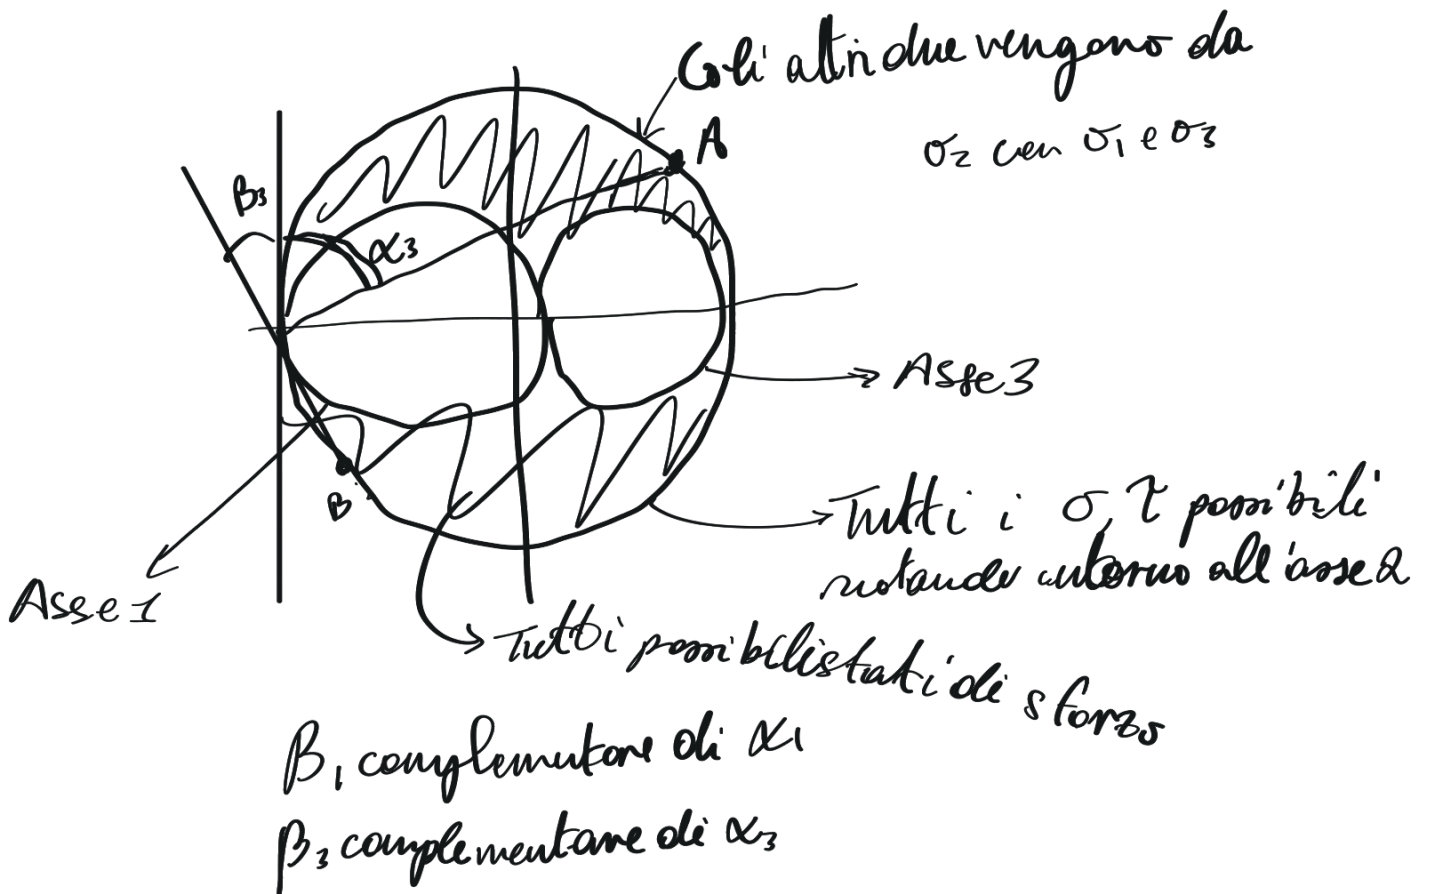 Gli altri due vengono da
σ₂ con σ₁ e σ₃
A
β₃
α₃
Asse 3
B
Tutti i σ, τ possibili
ruotando intorno all'asse 2
Asse 1
Tutti i possibili stati di sforzo
β₁ complementare di α₁
β₃ complementare di α₃